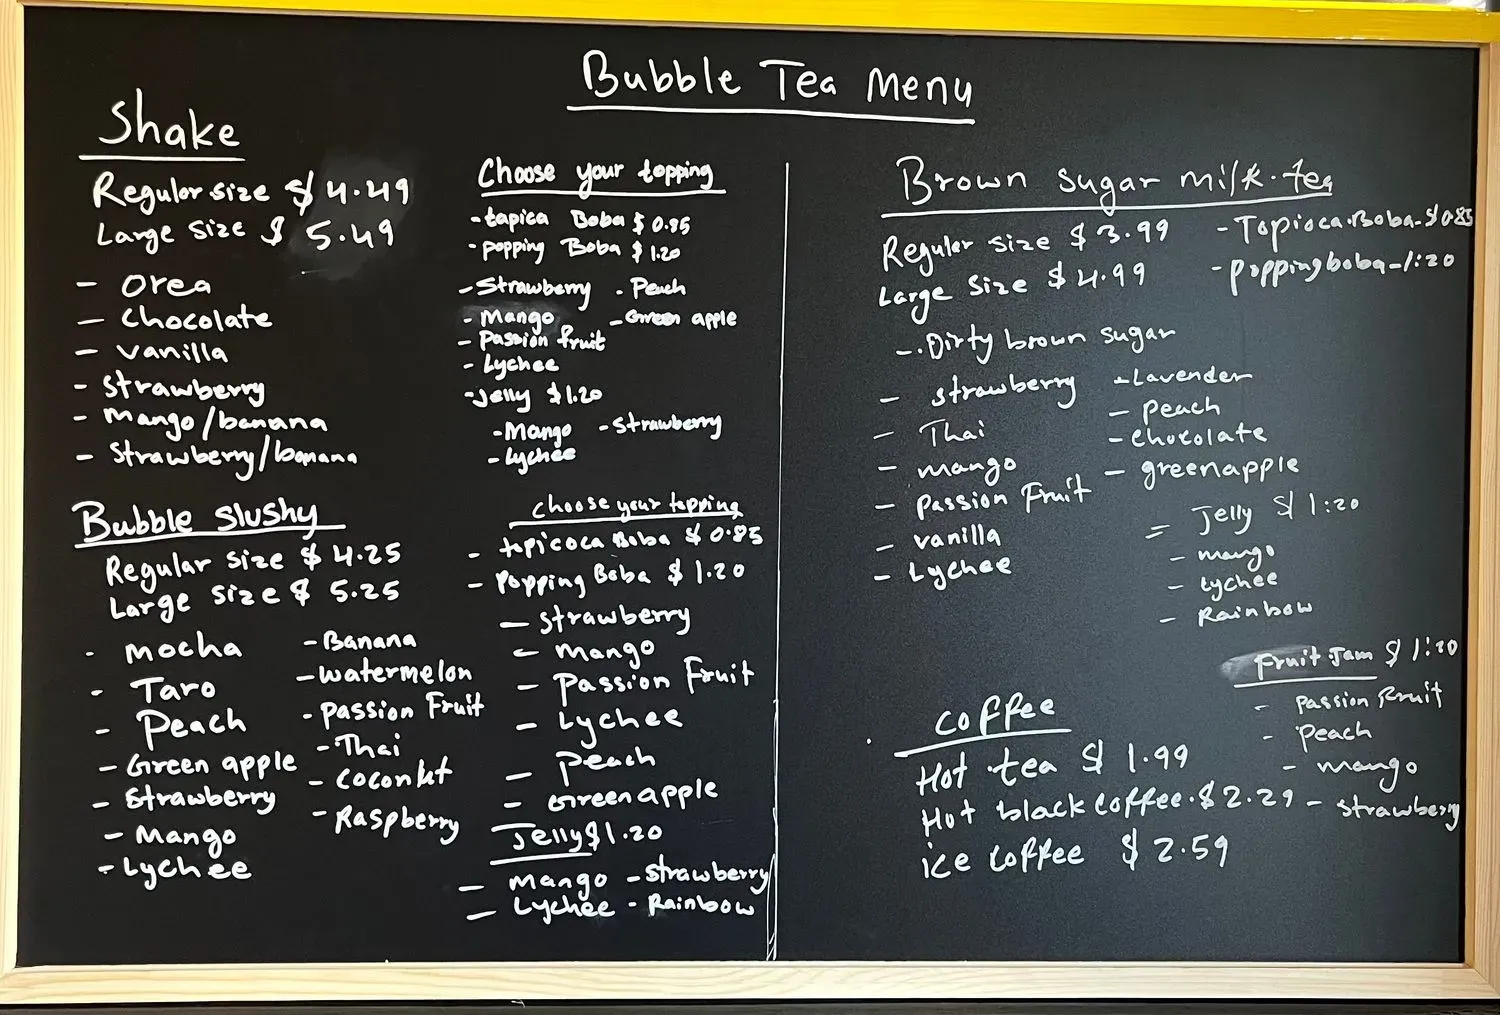 Bubble Tea Menu
Shake
Regular size $ 4.49
Large size $ 5.49
- orea
- chocolate
- vanilla
- strawberry
- mango/banana
- strawberry/banana
Choose your topping
- tapica Boba $ 0.85
- popping Boba $ 1.20
- Strawberry - Peach
- Mango - Green apple
- Passion fruit
- Lychee
- Jelly $1.20
- Mango - Strawberry
- Lychee
Bubble slushy
Regular size $ 4.25
Large size $ 5.25
- mocha
- Taro
- Peach
- Green apple
- Strawberry
- Mango
- Lychee
- Banana
- watermelon
- Passion Fruit
- Thai
- coconut
- Raspberry
choose your topping
- topicoca Boba $ 0.85
- Popping Boba $ 1.20
- strawberry
- mango
- Passion Fruit
- Lychee
- Peach
- Green apple
Jelly $1.20
- mango - strawberry
- Lychee - Rainbow
Brown sugar milk.tea
Regular size $ 3.99
Large size $ 4.99
- Topioca.Boba-$0.85
- poppingboba-1:20
-. Dirty brown sugar
- strawberry
- Thai
- mango
- Passion Fruit
- vanilla
- Lychee
- Lavender
- Peach
- chocolate
- greenapple
= Jelly $ 1:20
- mango
- Lychee
- Rainbow
Fruit Jam $ 1:20
- Passion Fruit
- Peach
- mango
- strawberry
coffee
Hot tea $ 1.99
Hot black coffee.$ 2.29
ice coffee $ 2.59